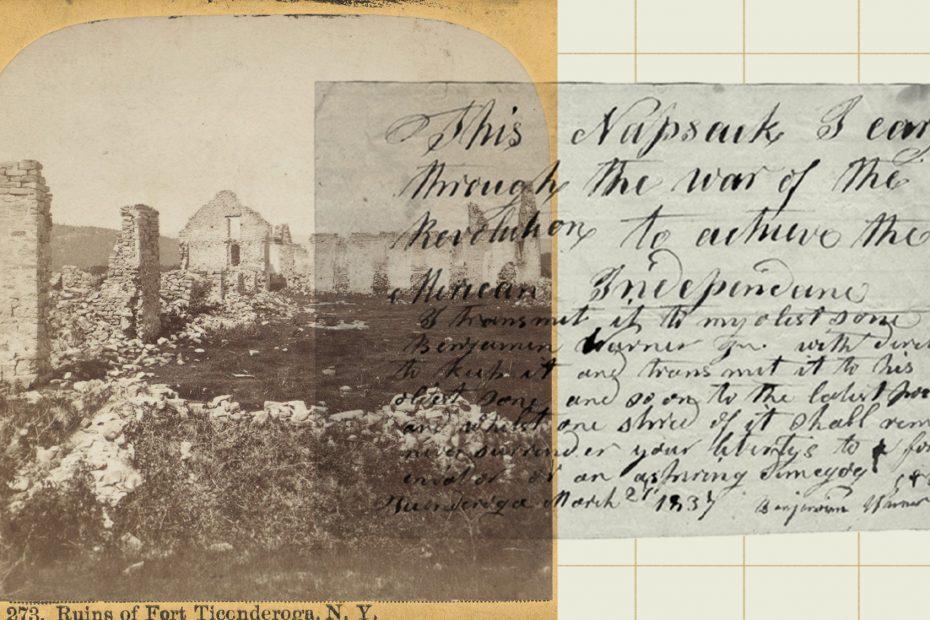 This Napsack I car
through the war of the
Revolution to achieve the
Merican Independence
I transmit it to my olest sone
Benjamin Warner Jr. with direc
to keep it and transmit it to his
olest sone and so on to the latest pos
and whilst one shred of it shall rem
never surrender your libertys to a for
envador or an aspiring
Ticonderoga March 21 1837 Benjamin Warner
273. Ruins of Fort Ticonderoga, N. Y.